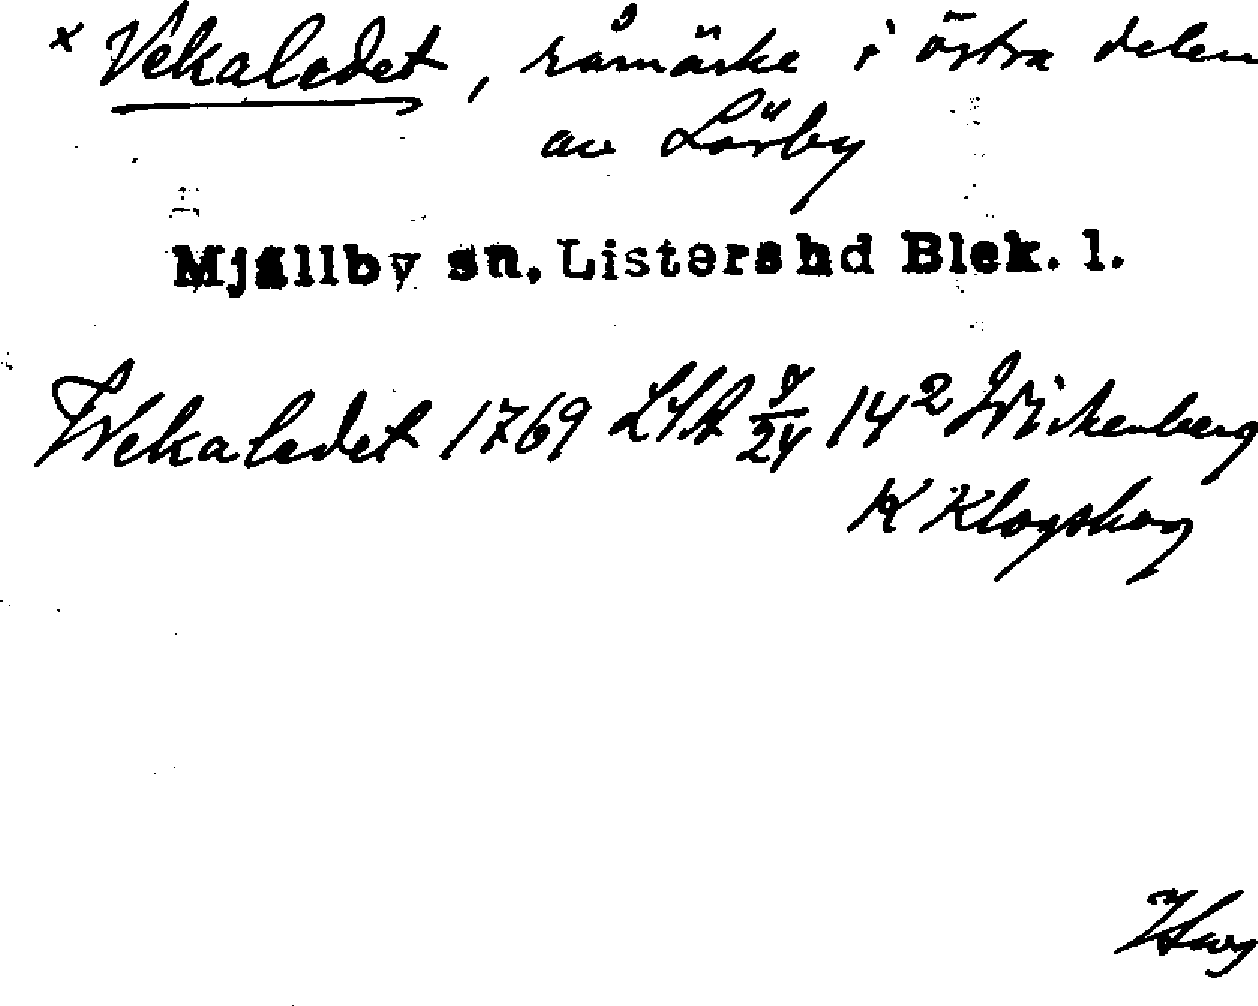 × Vekaledet, råmärke i östra delen
av Lörby
Mjällby sn. Listers hd Blek. l.
Wekaledet 1769 LSA 14² Wickenberg
K